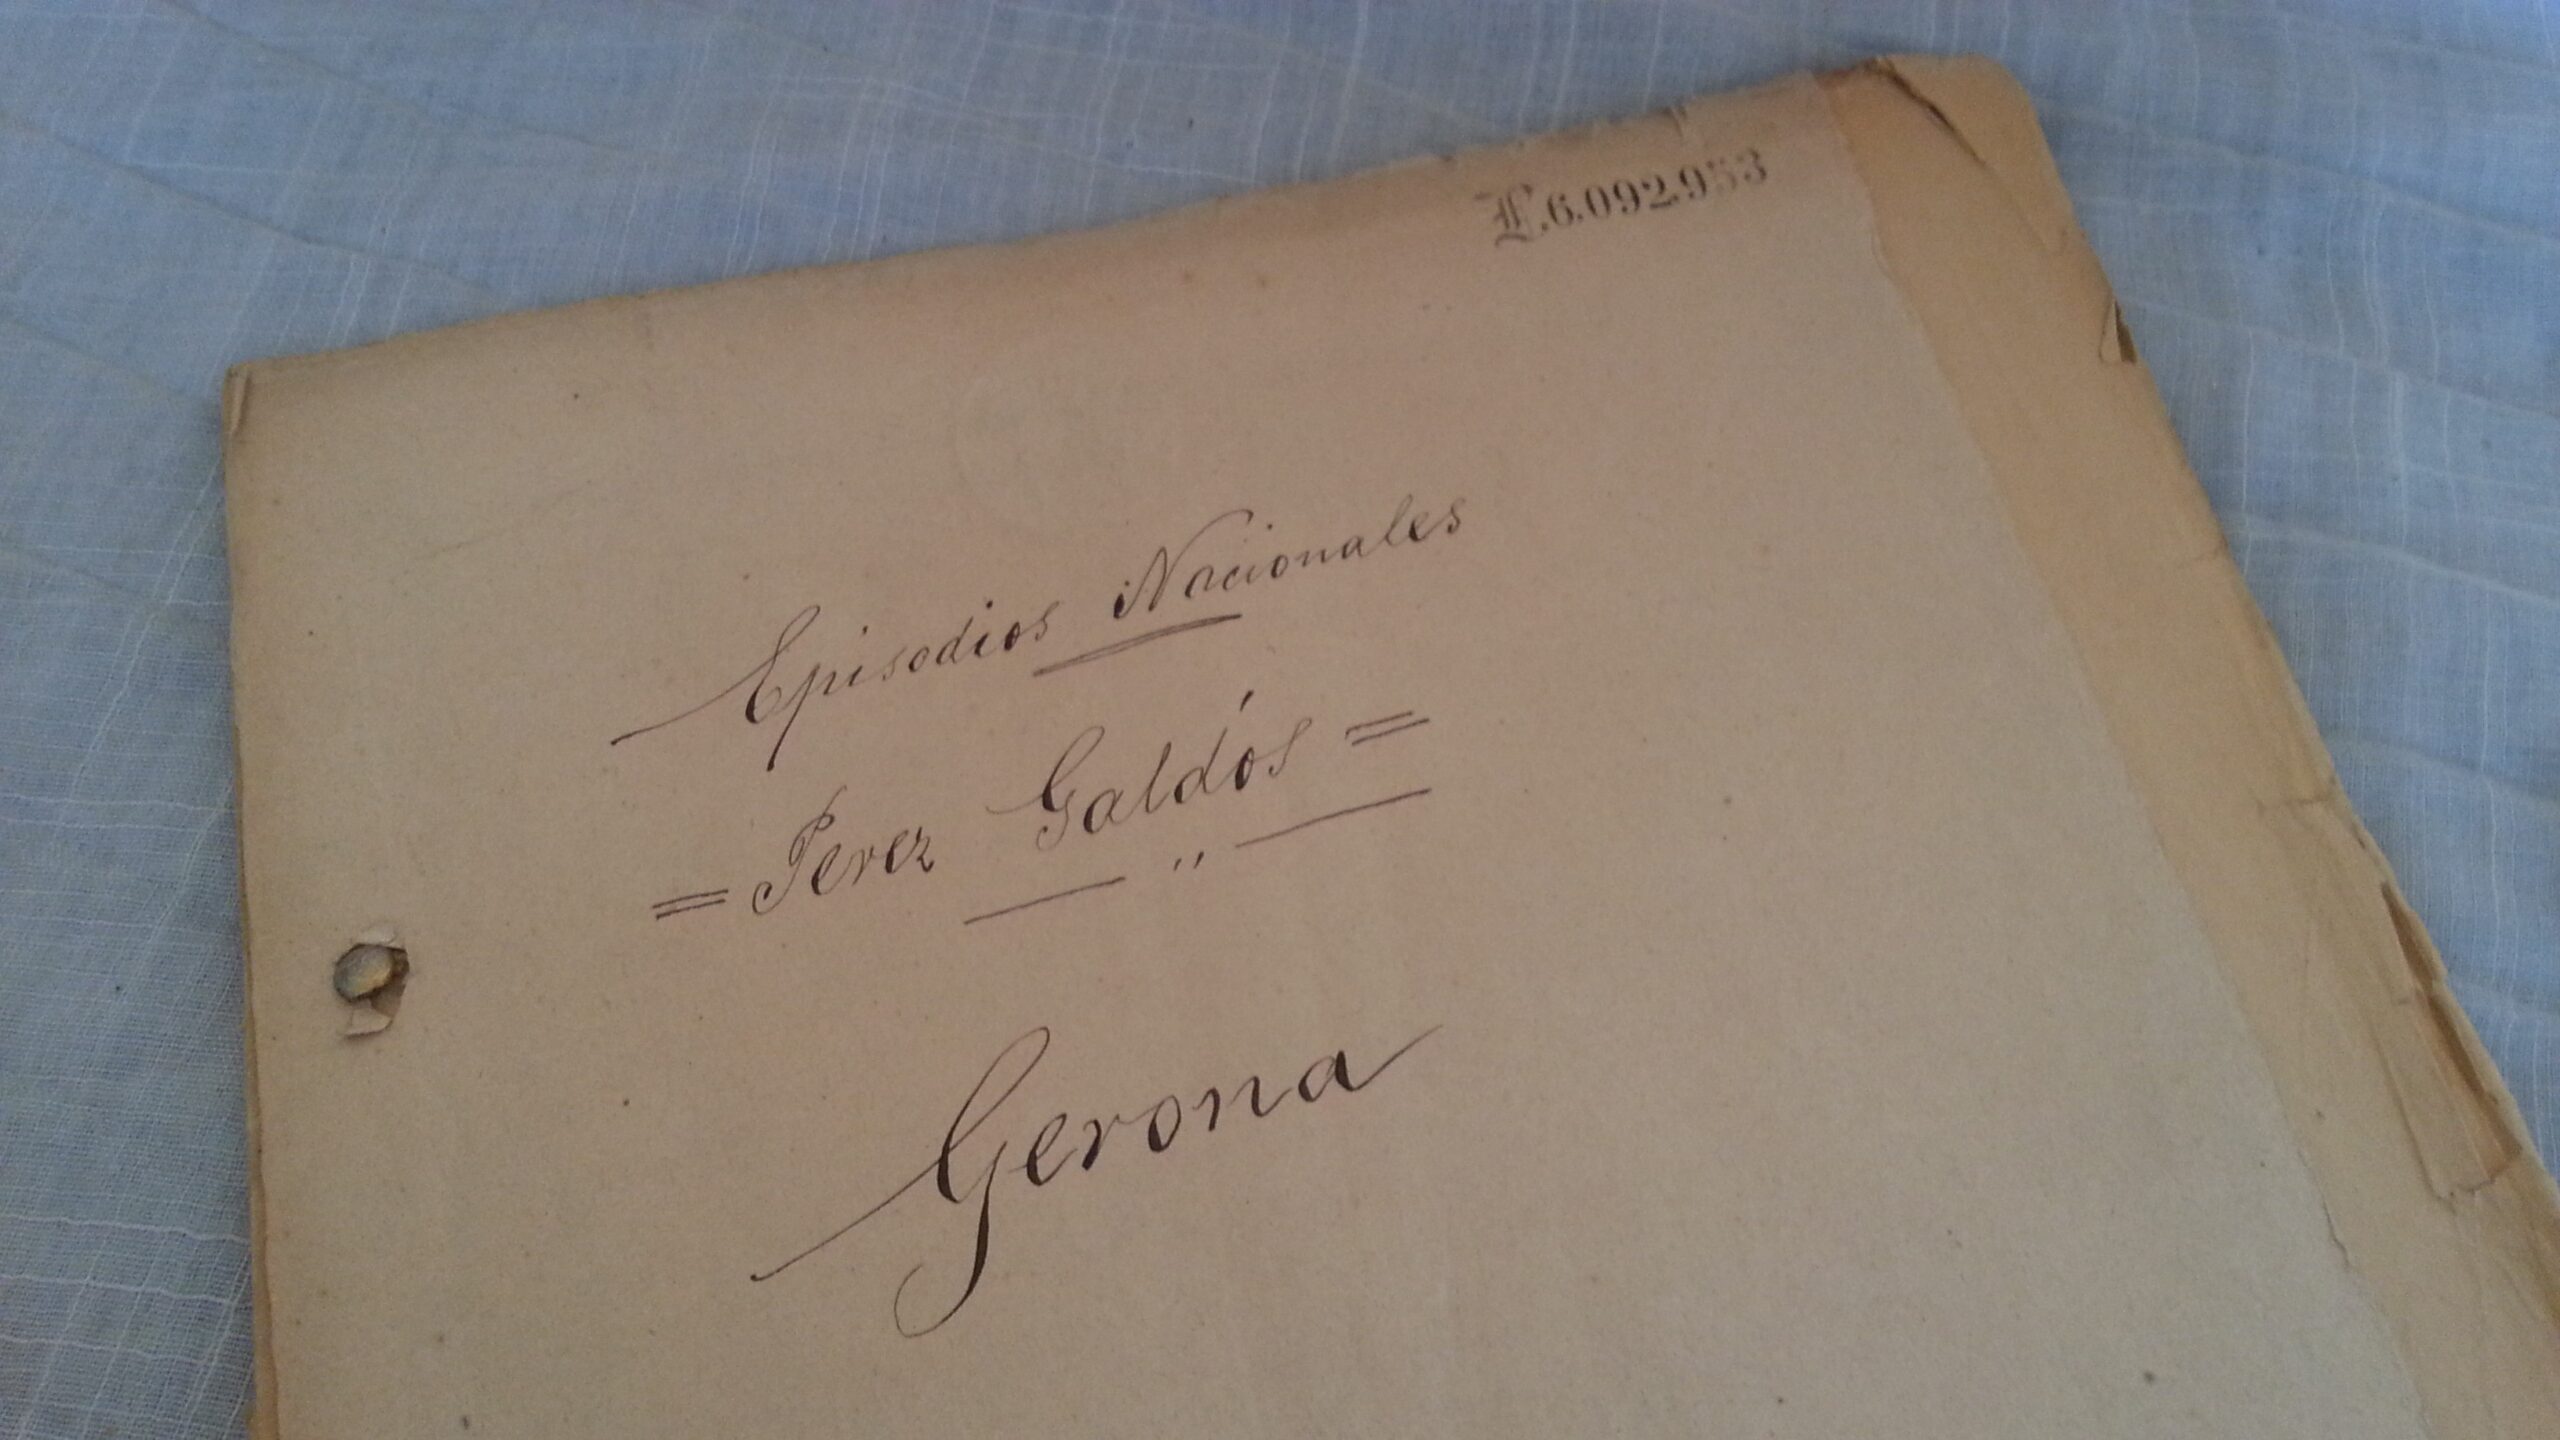 L.6.092.953
Episodios Nacionales
= Perez Galdós =
— " —
Gerona